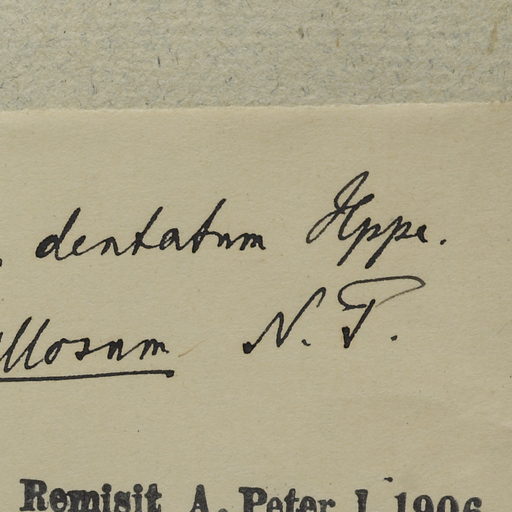 . dentatum Hppe.
illosum N. P.
Remisit A. Peter I. 1906